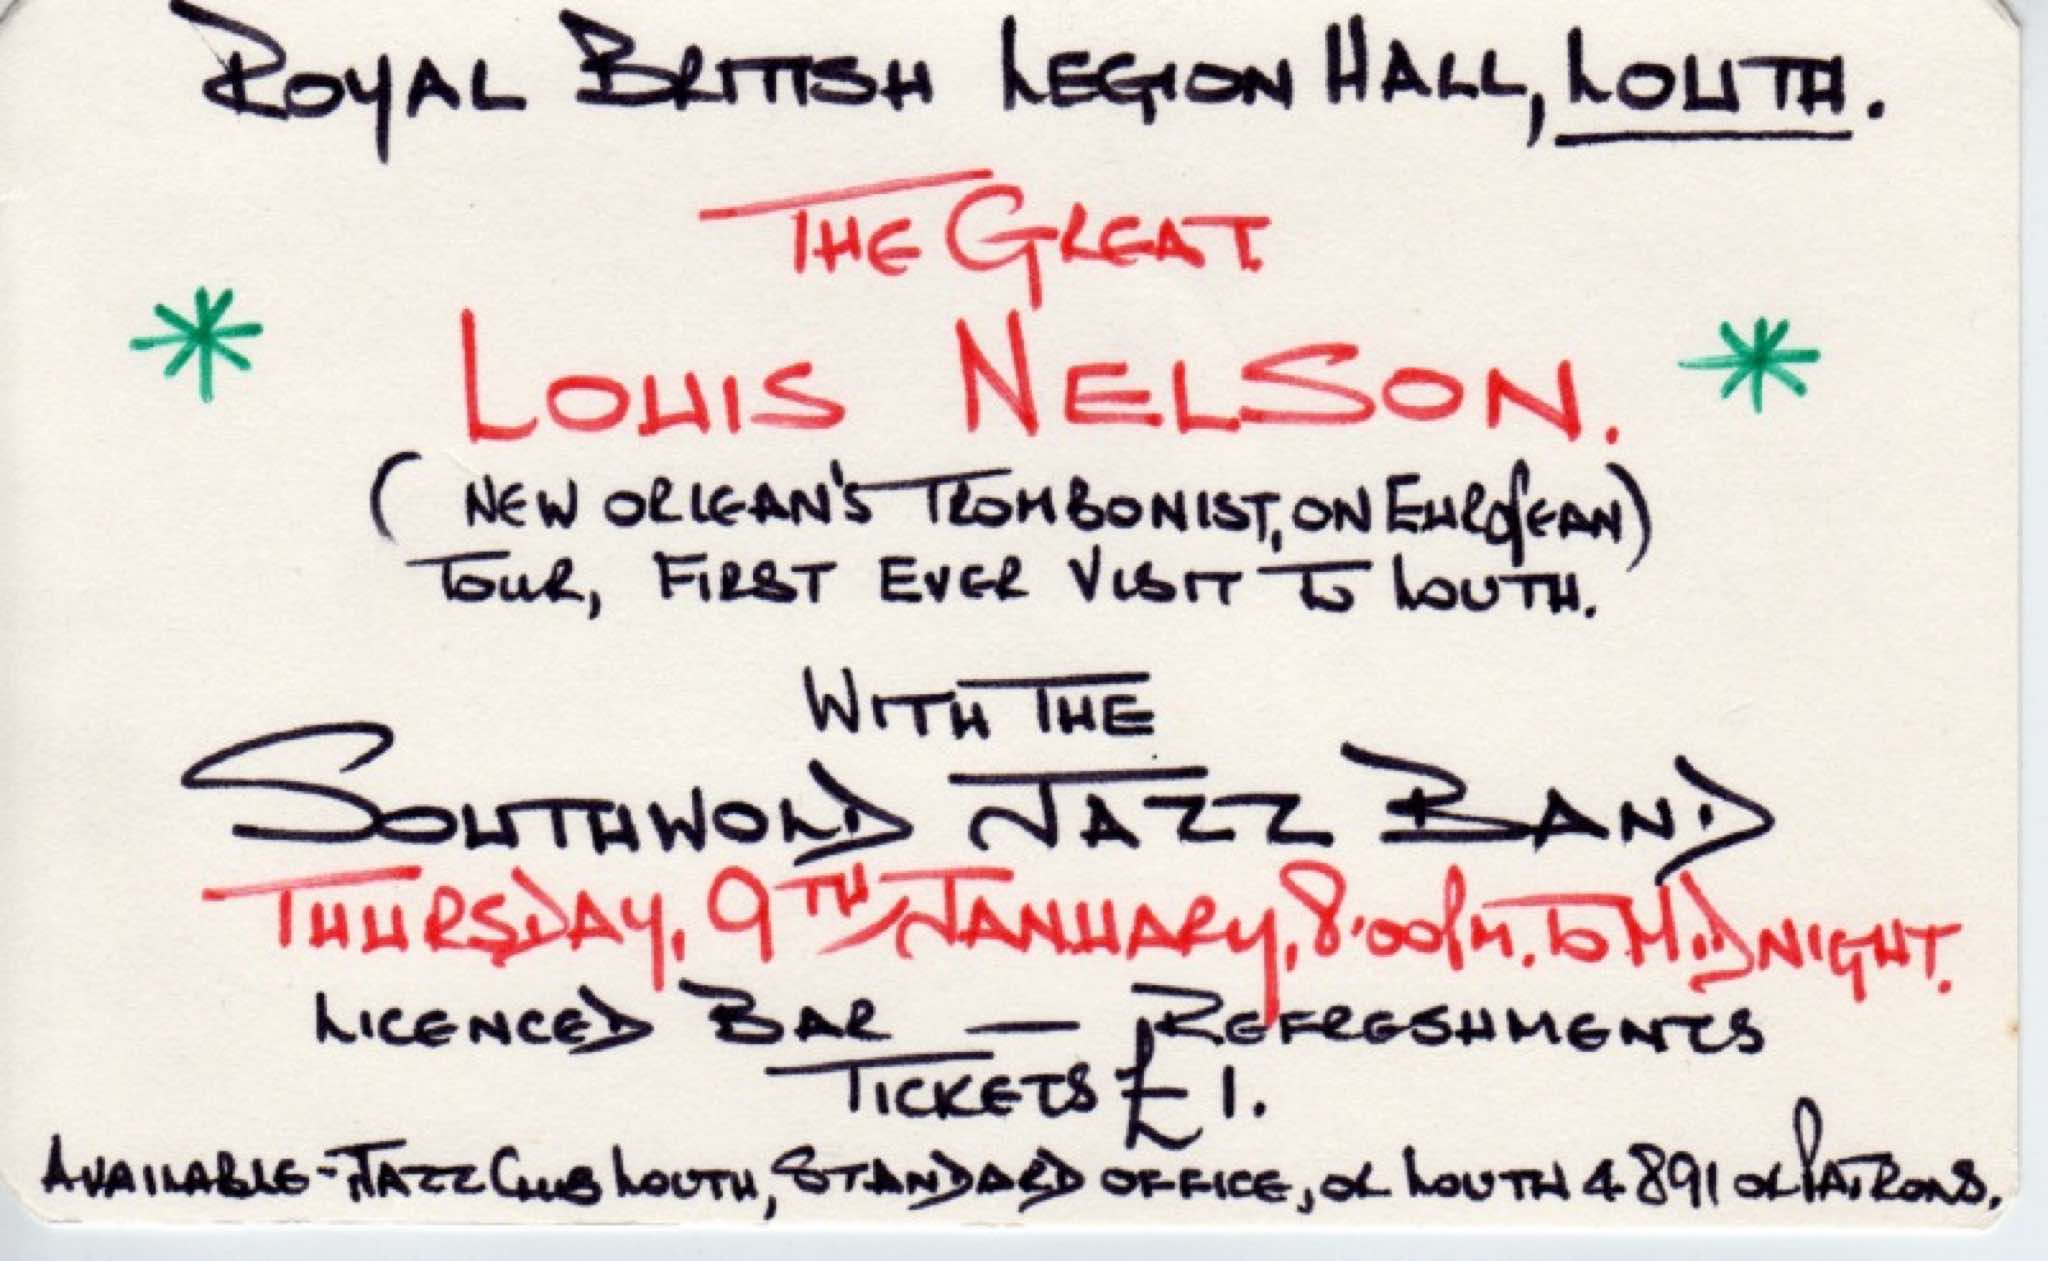 ROYAL BRITISH LEGION HALL, LOUTH.
THE GREAT
* LOUIS NELSON. *
( NEW ORLEAN'S TROMBONIST, ON EUROPEAN )
TOUR, FIRST EVER VISIT TO LOUTH.
WITH THE
SOUTHWOLD JAZZ BAND
THURSDAY, 9TH JANUARY, 8.00PM. TO MIDNIGHT.
LICENCED BAR — REFRESHMENTS
TICKETS £1.
AVAILABLE - JAZZ CLUB LOUTH, STANDARD OFFICE, OR LOUTH 4891 OR PATRONS.